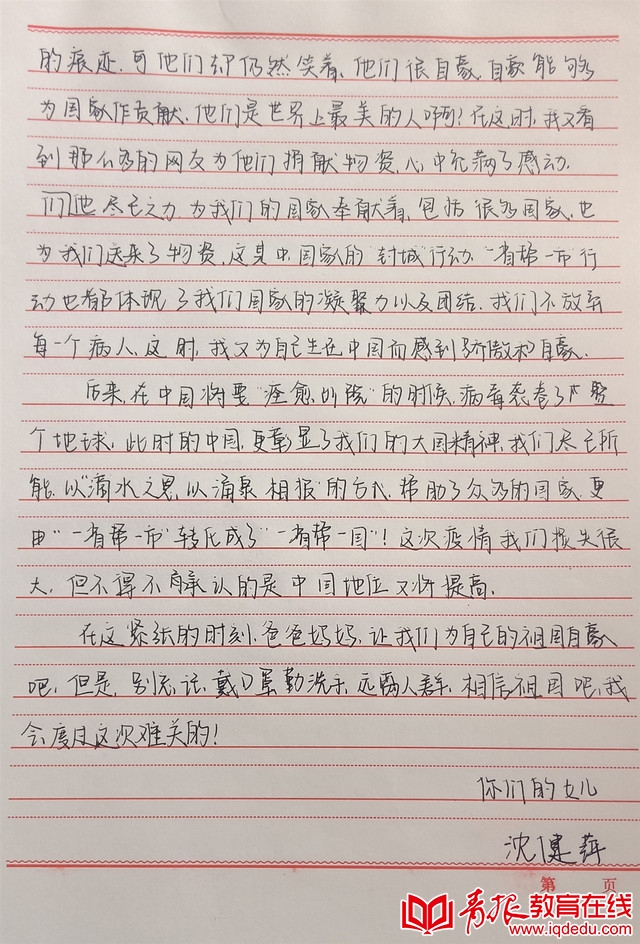 的痕迹,可他们却仍然笑着,他们很自豪,自豪能够
为国家作贡献,他们是世界上最美的人啊!在这时,我又看
到那么多的网友为他们捐献物资,心中充满了感动.
们他尽己之力为我们的国家奉献着,包括很多国家,也
为我们送来了物资,这是中国家的"封城"行动"一省帮一市行
动也都体现了我们国家的凝聚力以及团结.我们不放弃
每一个病人,这时,我又为自己生在中国而感到骄傲和自豪.
后来,在中国将要"痊愈出院"的时候,病毒袭卷了整
个地球,此时的中国,更彰显了我们的大国精神,我们尽己所
能,以"滴水之恩,以涌泉相报"的方式,帮助了众多的国家,更
由"一省帮一市"转化成了"一省帮一国"!这次疫情我们损失很
大,但不得不承认的是中国地位又将提高.
在这紧张的时刻,爸爸妈妈,让我们为自己的祖国自豪
吧,但是,别忘记,戴口罩勤洗手,远离人群,相信祖国吧,我
会度过这次难关的!
你们的女儿
沈健萍
第 页
青报教育在线
www.iqdedu.com